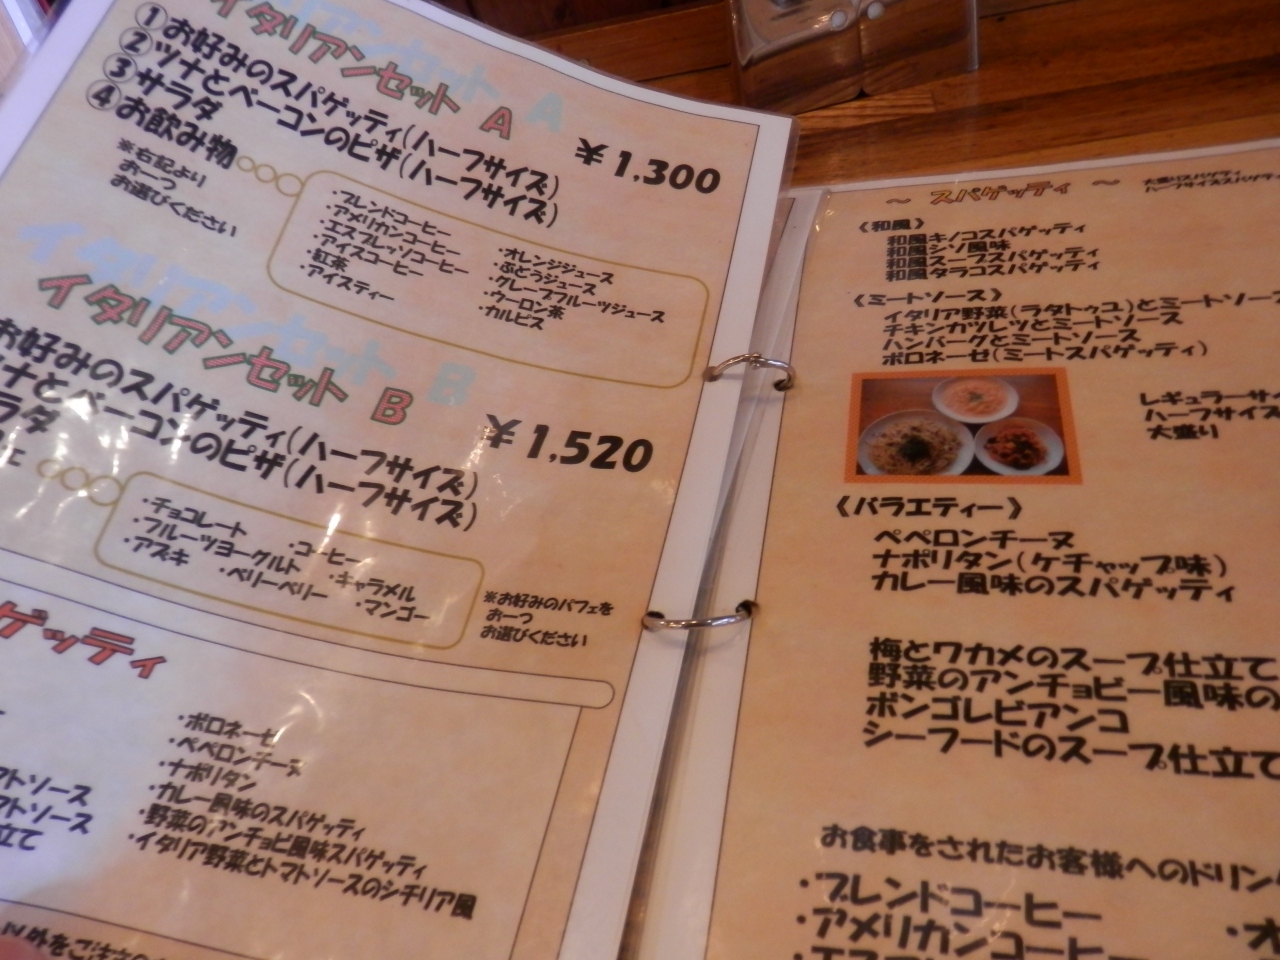 イタリアンセット A
①お好みのスパゲッティ(ハーフサイズ)
②ツナとベーコンのピザ(ハーフサイズ)
③サラダ
④お飲み物
¥1,300
※右記より
お一つ
お選びください
・ブレンドコーヒー
・アメリカンコーヒー
・エスプレッソコーヒー
・アイスコーヒー
・紅茶
・アイスティー
・オレンジジュース
・ぶどうジュース
・グレープフルーツジュース
・ウーロン茶
・カルピス
イタリアンセット B
お好みのスパゲッティ(ハーフサイズ)
ナとベーコンのピザ(ハーフサイズ)
ラダ
¥1,520
・チョコレート
・フルーツヨーグルト
・アズキ
・コーヒー
・キャラメル
・ベリーベリー
・マンゴー
※お好みのパフェを
お一つ
お選びください
ゲッティ
マトソース
マトソース
立て
・ボロネーゼ
・ペペロンチーヌ
・ナポリタン
・カレー風味のスパゲッティ
・野菜のアンチョビ風味スパゲッティ
・イタリア野菜とトマトソースのシチリア風
～ スパゲッティ ～
大盛りスパゲティ
ハーフサイズスパゲティ
《和風》
和風キノコスパゲッティ
和風シソ風味
和風スープスパゲッティ
和風タラコスパゲッティ
《ミートソース》
イタリア野菜(ラタトゥユ)とミートソース
チキンカツレツとミートソース
ハンバーグとミートソース
ボロネーゼ(ミートスパゲッティ)
レギュラーサイ
ハーフサイズ
大盛り
《バラエティー》
ペペロンチーヌ
ナポリタン(ケチャップ味)
カレー風味のスパゲッティ
梅とワカメのスープ仕立て
野菜のアンチョビー風味の
ボンゴレビアンコ
シーフードのスープ仕立て
お食事をされたお客様へのドリン
・ブレンドコーヒー
・アメリカンコーヒー